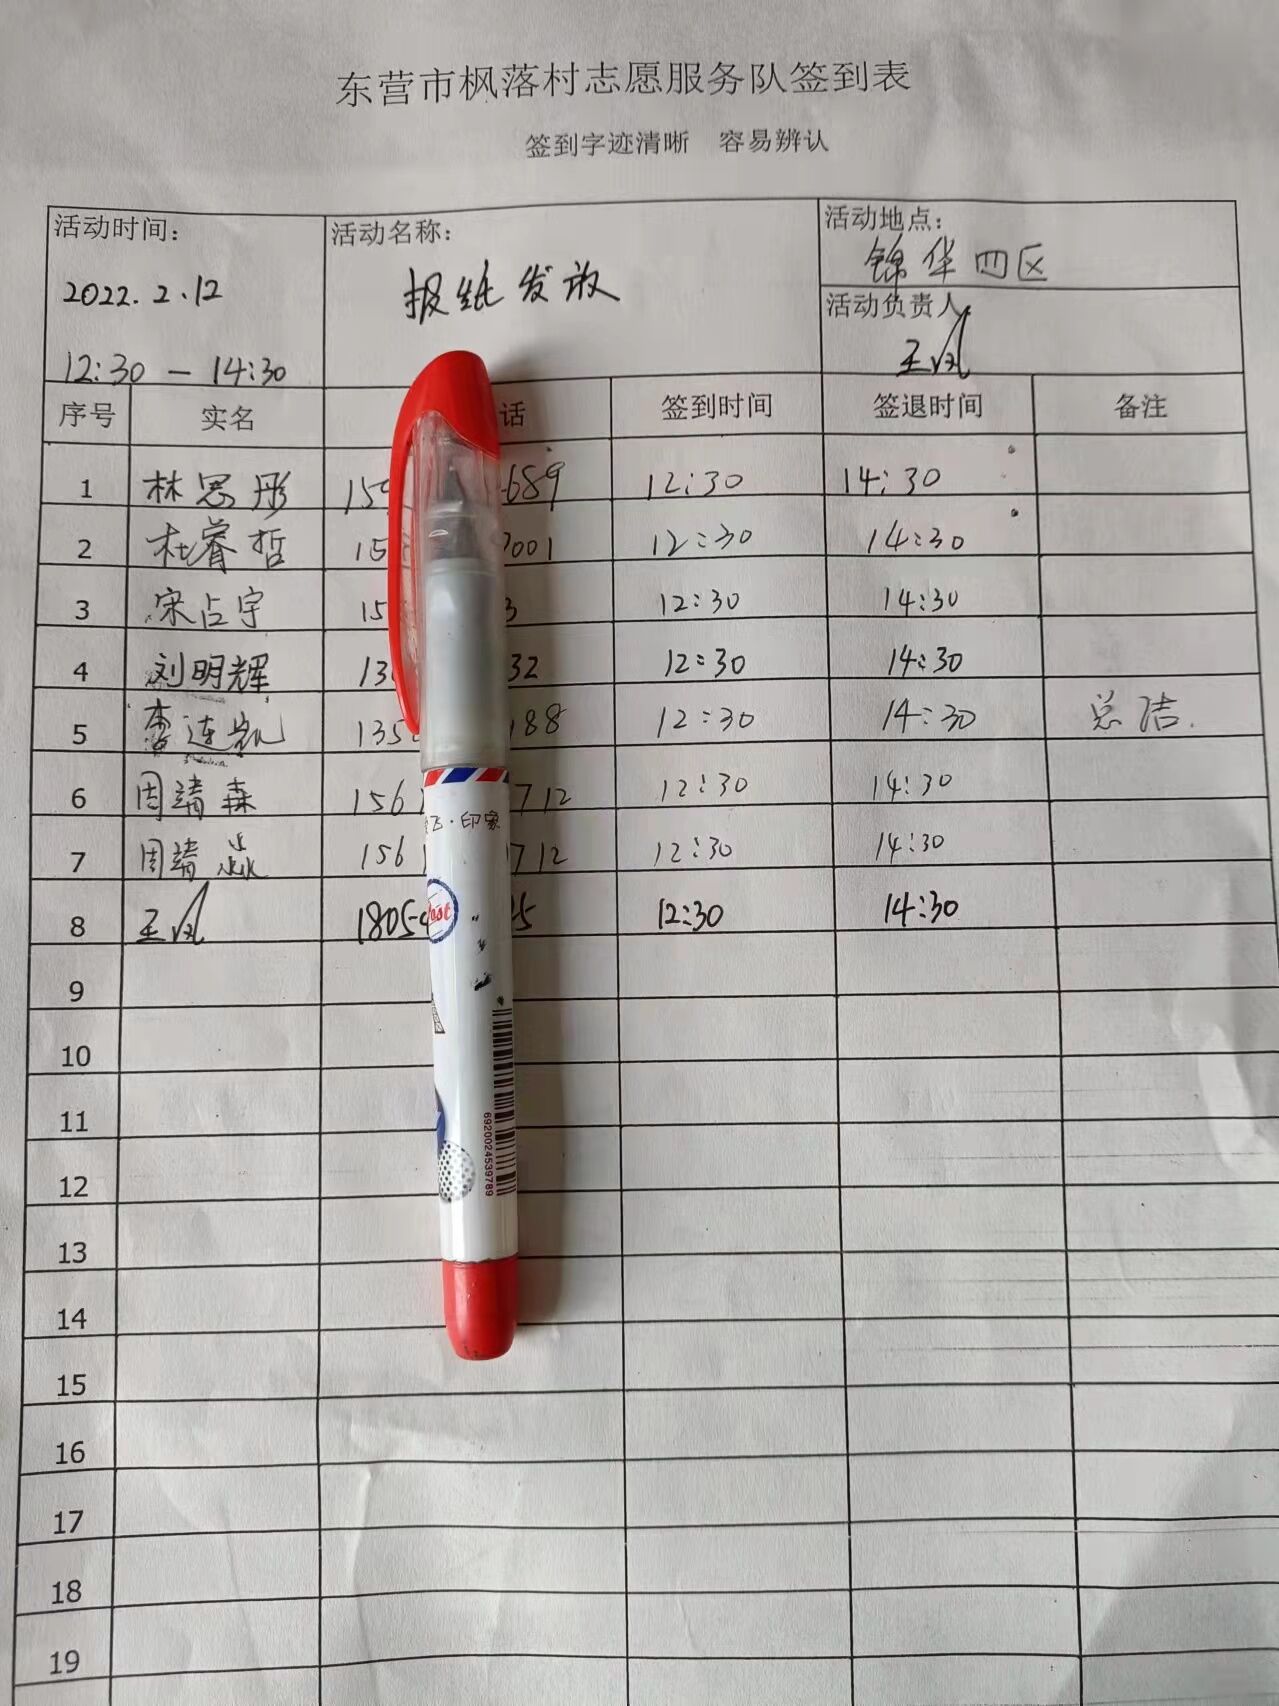 东营市枫落村志愿服务队签到表
签到字迹清晰 容易辨认
活动时间:
2022.2.12
12:30 — 14:30
活动名称:
报纸发放
活动地点:
锦华四区
活动负责人
王凤
序号 实名 话 签到时间 签退时间 备注
1 林思彤 159 689 12:30 14:30
2 杜睿哲 15 7001 12:30 14:30
3 宋占宇 15 3 12:30 14:30
4 刘明辉 13 32 12:30 14:30
5 李连凯 135 188 12:30 14:30 总洁.
6 周靖森 156 712 12:30 14:30
7 周靖淼 156 1712 12:30 14:30
8 王凤 1805 5 12:30 14:30
9
10
11
12
13
14
15
16
17
18
19
飞·印象
Post
6920024539789